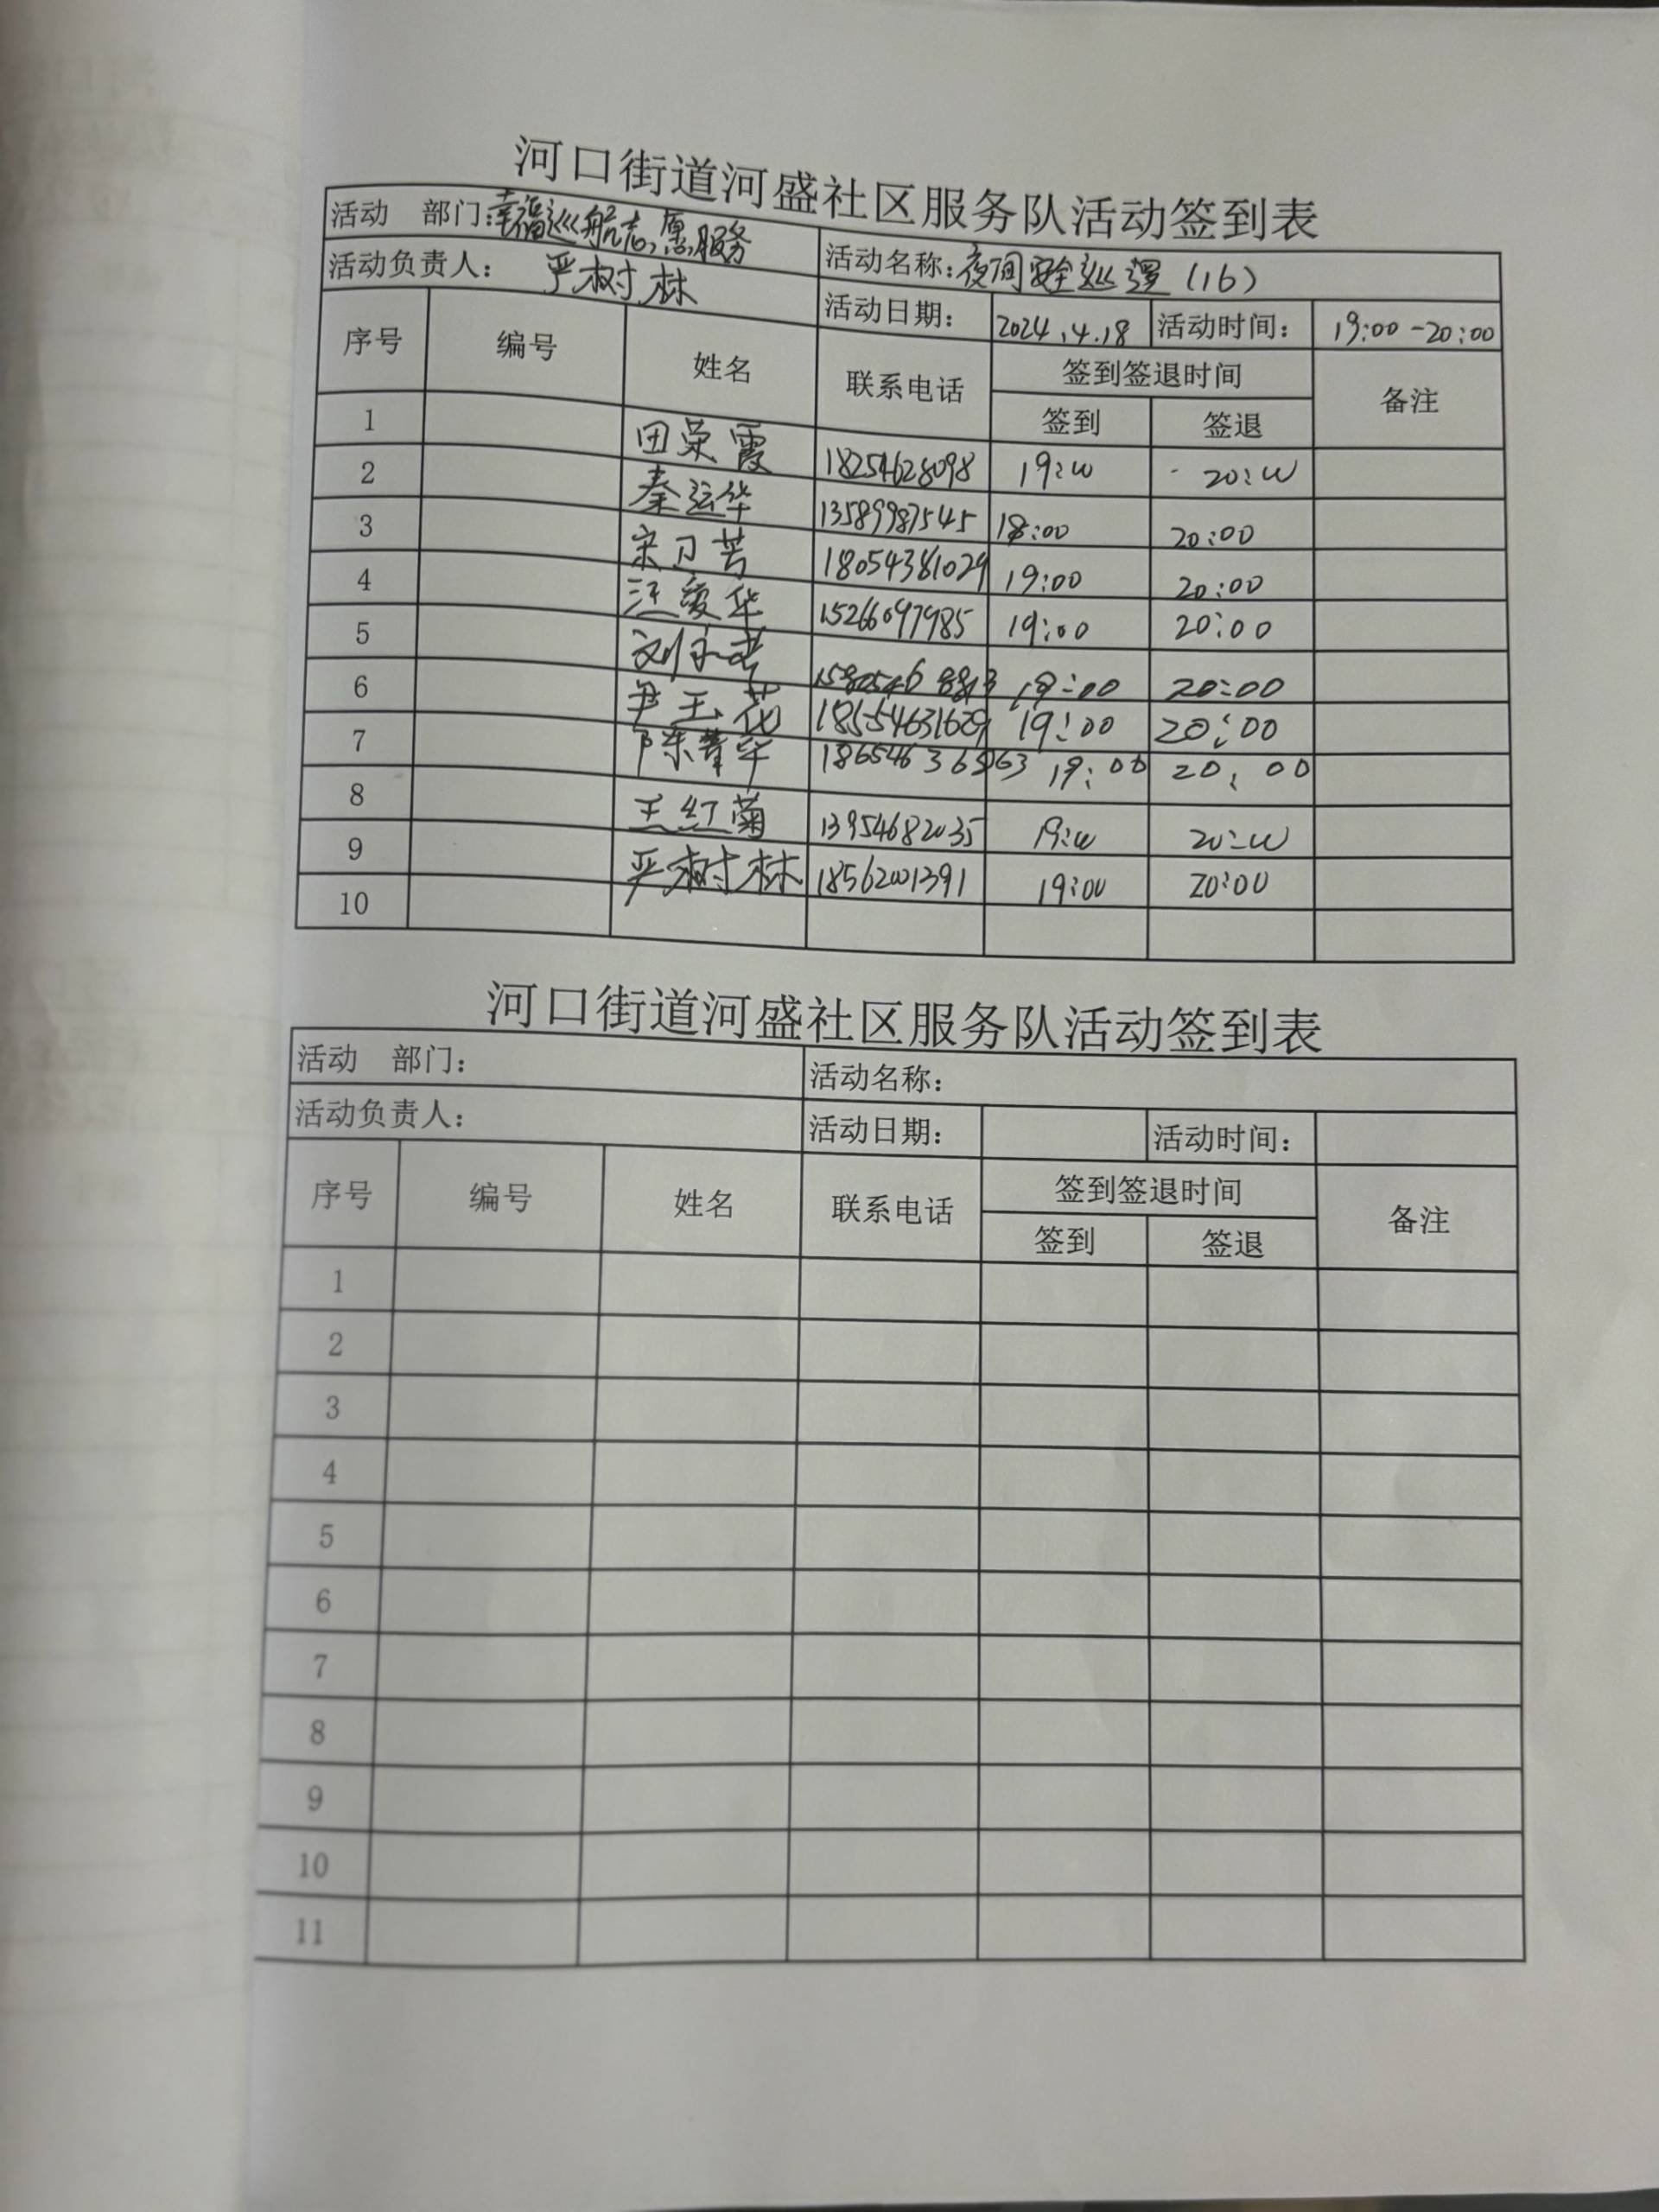 河口街道河盛社区服务队活动签到表
活动 部门:幸福巡航志愿服务 活动名称:夜间安全巡逻(16)
活动负责人: 严树林 活动日期: 2024.4.18 活动时间: 19:00-20:00
序号 编号 姓名 联系电话 签到签退时间 备注
签到 签退
1 田荣霞 18254628098 19:00 20:00
2 秦运华 13589987545 18:00 20:00
3 宋卫芳 18054381029 19:00 20:00
4 汪爱华 15266097985 19:00 20:00
5 19:00 20:00
6 尹玉花 18554631629 19:00 20:00
7 19:00 20:00
8 王红菊 13954682035 19:00 20:00
9 严树林 18562001391 19:00 20:00
10
河口街道河盛社区服务队活动签到表
活动 部门: 活动名称:
活动负责人: 活动日期: 活动时间:
序号 编号 姓名 联系电话 签到签退时间 备注
签到 签退
1
2
3
4
5
6
7
8
9
10
11